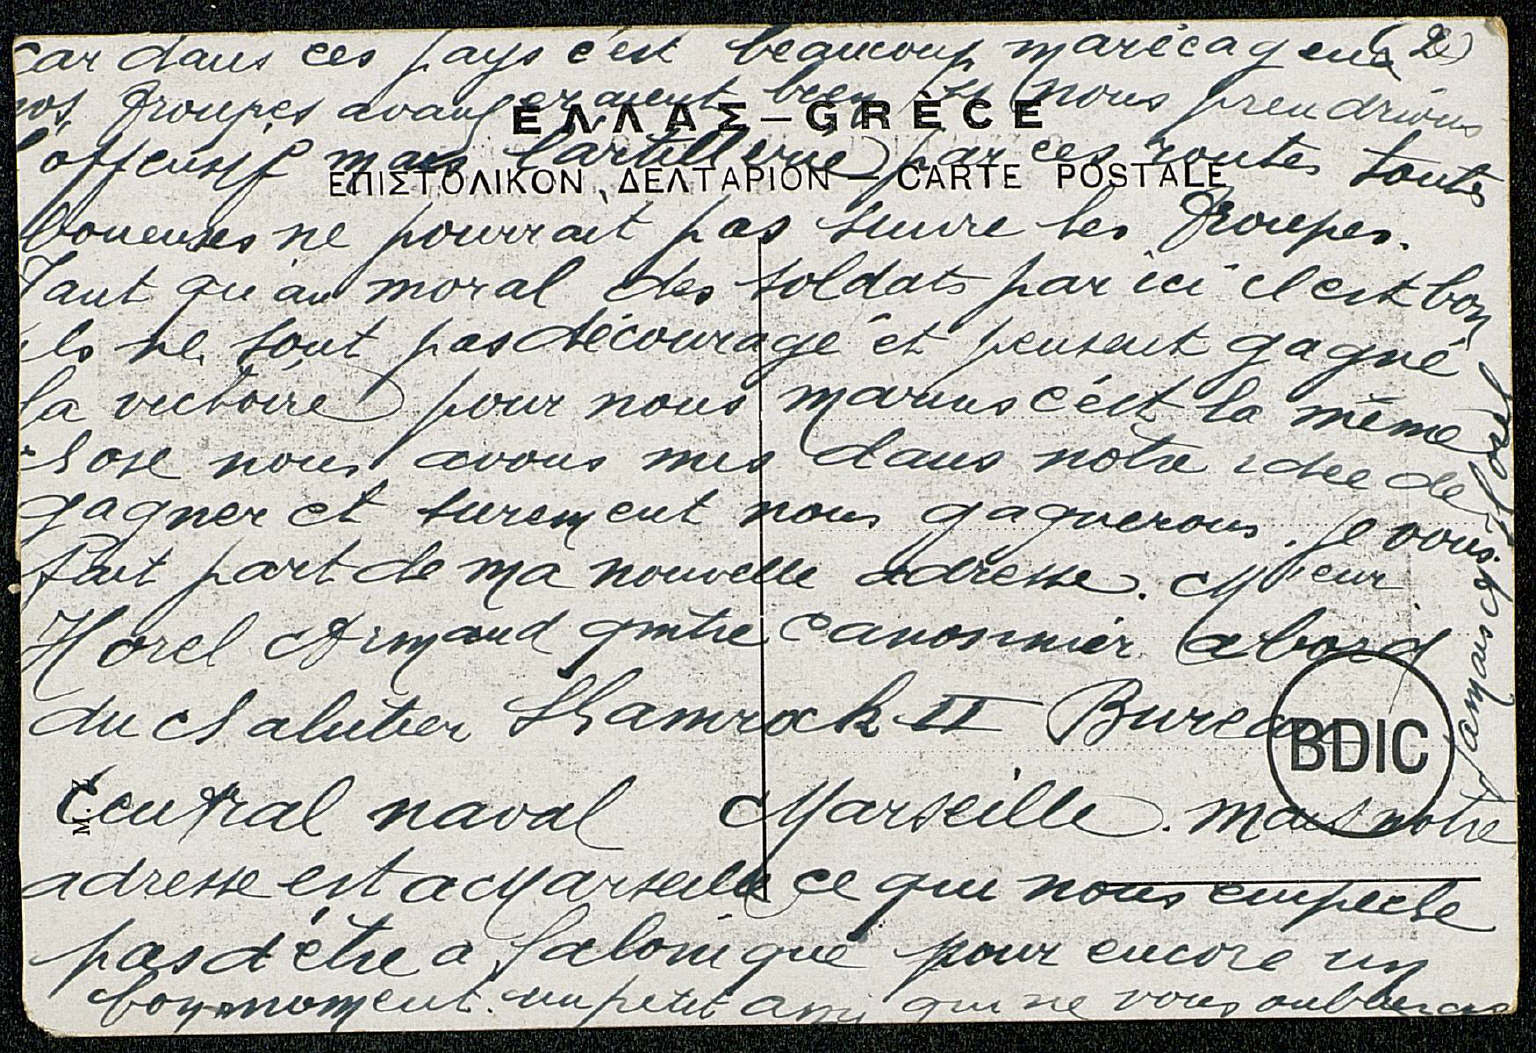 car dans ces pays c'est beaucoup marécageux (2)
nos troupes avangeraient bien si nous prendrions
l'offensif mais l'artillerie par ces routes toutes
boueuses ne pourrait pas suivre les troupes.
Tant qu'au moral des soldats par ici il est bon
ils ne sont pas découragé et pensent gagné
la victoire pour nous marins c'est la même
chose nous avons mis dans notre idée de
gagner et surement nous gagnerons. Je vous
fait part de ma nouvelle adresse. Mr
Horel Armand canonnier abord
du chalutier Shamrock II Bureau
Central naval Marseille. mais notre
adresse est a Marseille ce qui nous empeche
pas d'être a Salonique pour encore un
bon moment. un petit ami qui ne vous oublieras
jamais
ΕΛΛΑΣ – GRÈCE
ΕΠΙΣΤΟΛΙΚΟΝ ΔΕΛΤΑΡΙΟΝ – CARTE POSTALE
BDIC